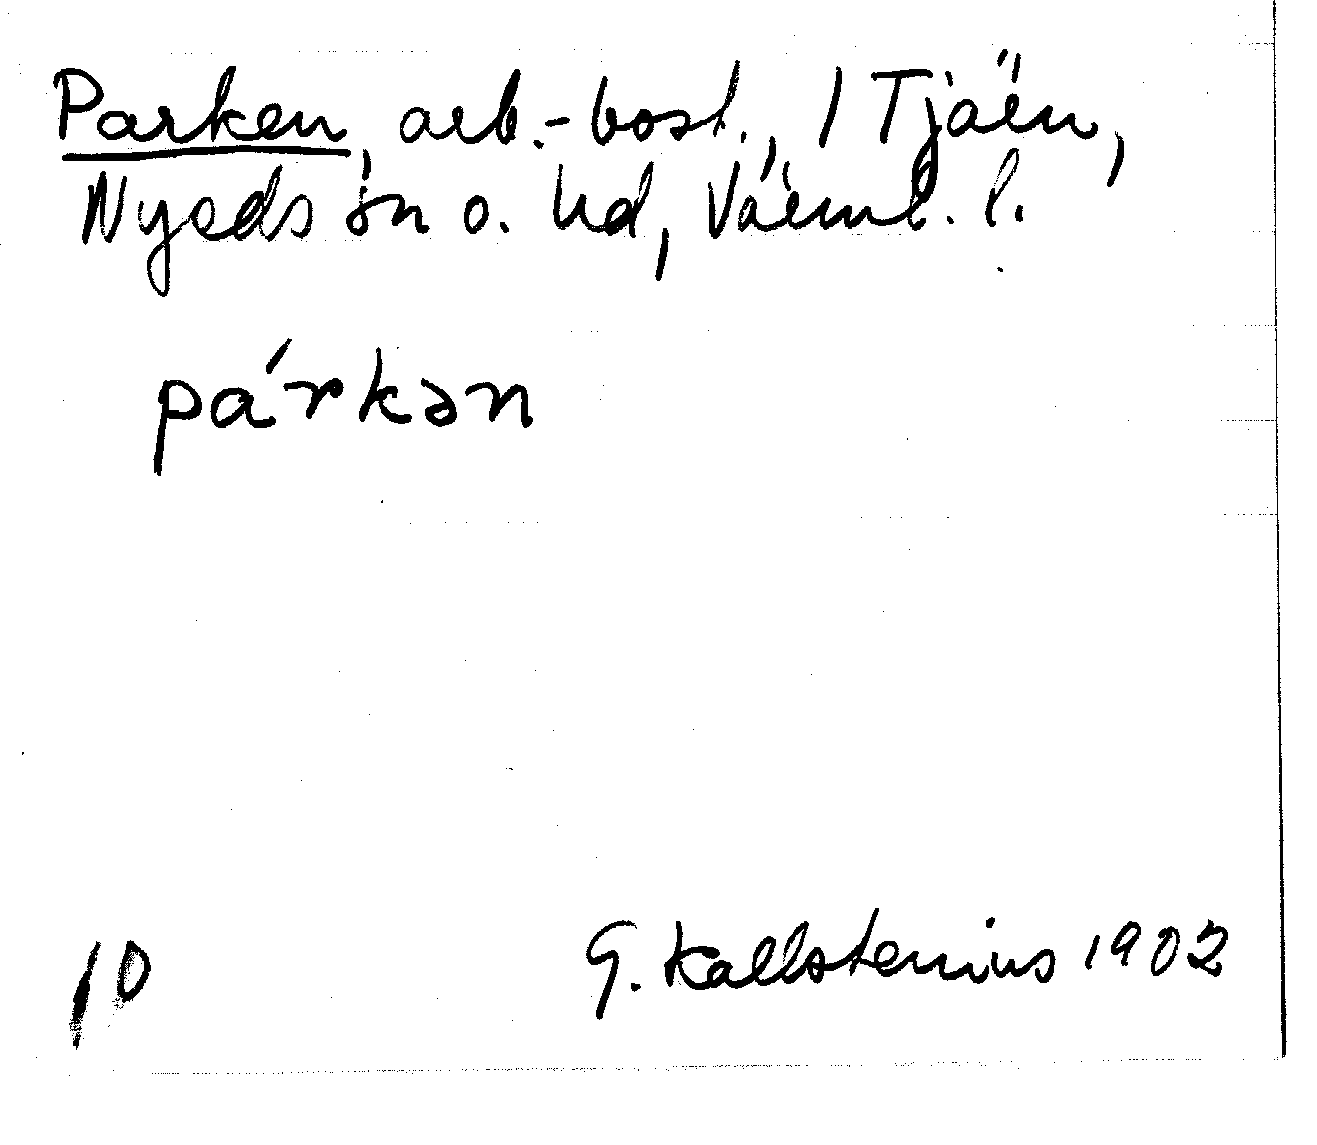 Parken, arb.-bost., 1 Tjärn,
Nyeds sn o. hd, Värml. l.
pa´rkən
10
G. Kallstenius 1902